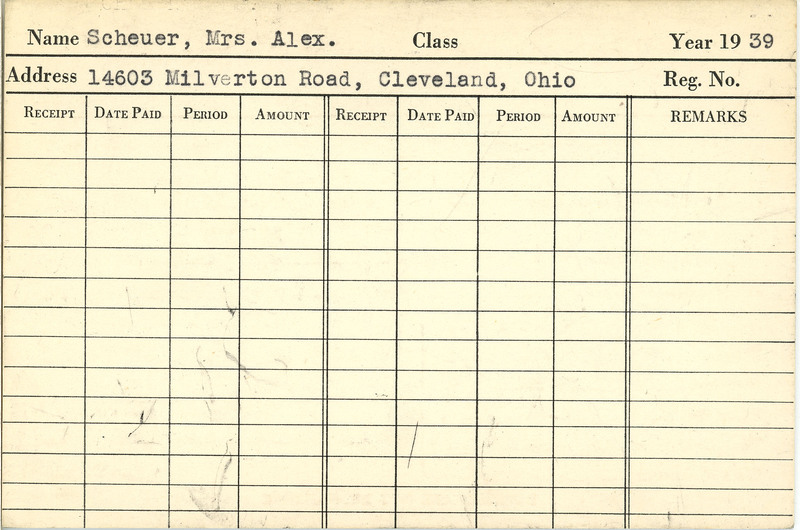 Name Scheuer, Mrs. Alex. Class Year 1939
Address 14603 Milverton Road, Cleveland, Ohio Reg. No.
RECEIPT DATE PAID PERIOD AMOUNT RECEIPT DATE PAID PERIOD AMOUNT REMARKS